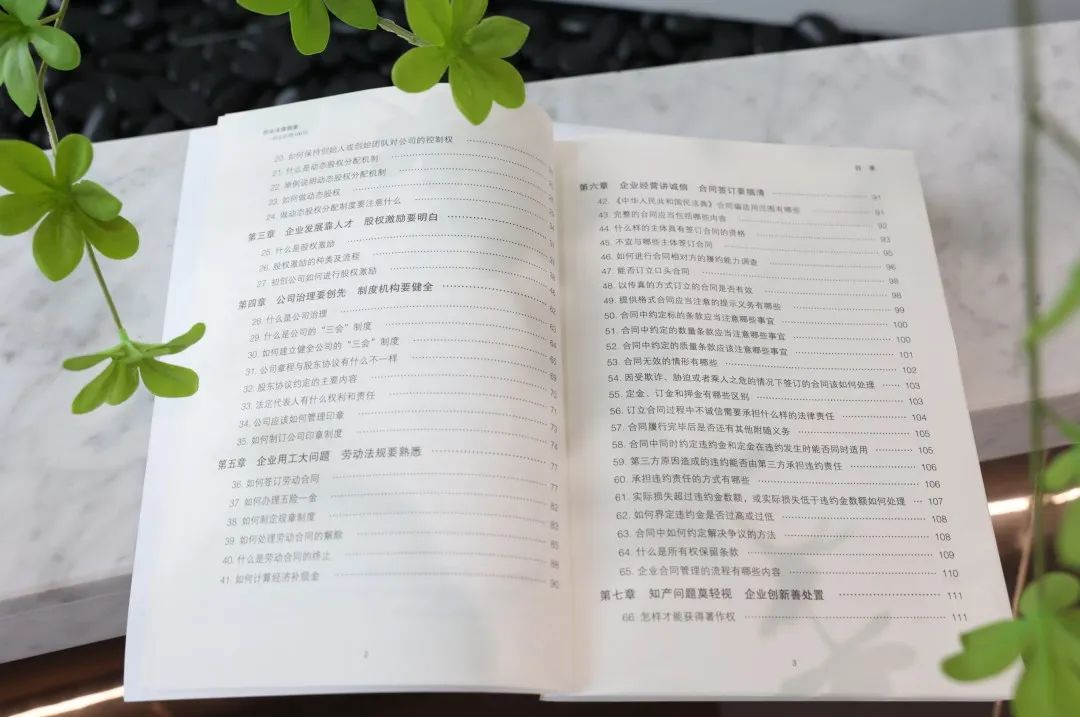 20. 如何保持创始人或创始团队对公司的控制权
21. 什么是动态股权分配机制
22. 举例说明动态股权分配机制
23. 如何做动态股权
24. 做动态股权分配制度要注意什么
第三章 企业发展靠人才 股权激励要明白
25. 什么是股权激励
26. 股权激励的种类及流程
27. 初创公司如何进行股权激励
第四章 公司治理要创先 制度机构要健全
28. 什么是公司治理
29. 什么是公司的“三会”制度
30. 如何建立健全公司的“三会”制度
31. 公司章程与股东协议有什么不一样
32. 股东协议约定的主要内容
33. 法定代表人有什么权利和责任
34. 公司应该如何管理印章
35. 如何制订公司印章制度 74
第五章 企业用工大问题 劳动法规要熟悉 77
36. 如何签订劳动合同 77
37. 如何办理五险一金 82
38. 如何制定规章制度 83
39. 如何处理劳动合同的解除 85
40. 什么是劳动合同的终止 88
41. 如何计算经济补偿金 90
2
目 录
第六章 企业经营讲诚信 合同签订要搞清 91
42. 《中华人民共和国民法典》合同编适用范围有哪些 91
43. 完整的合同应当包括哪些内容 92
44. 什么样的主体具有签订合同的资格 93
45. 不宜与哪些主体签订合同 95
46. 如何进行合同相对方的履约能力调查 96
47. 能否订立口头合同 98
48. 以传真的方式订立的合同是否有效 98
49. 提供格式合同应当注意的提示义务有哪些 99
50. 合同中约定标的条款应当注意哪些事宜 100
51. 合同中约定的数量条款应当注意哪些事宜 100
52. 合同中约定的质量条款应该注意哪些事宜 101
53. 合同无效的情形有哪些 102
54. 因受欺诈、胁迫或者乘人之危的情况下签订的合同该如何处理 103
55. 定金、订金和押金有哪些区别 103
56. 订立合同过程中不诚信需要承担什么样的法律责任 104
57. 合同履行完毕后是否还有其他附随义务 105
58. 合同中同时约定违约金和定金在违约发生时能否同时适用 105
59. 第三方原因造成的违约能否由第三方承担违约责任 106
60. 承担违约责任的方式有哪些 106
61. 实际损失超过违约金数额，或实际损失低于违约金数额如何处理 107
62. 如何界定违约金是否过高或过低 108
63. 合同中如何约定解决争议的方法 108
64. 什么是所有权保留条款 109
65. 企业合同管理的流程有哪些内容 110
第七章 知产问题莫轻视 企业创新善处置 111
66. 怎样才能获得著作权 111
3